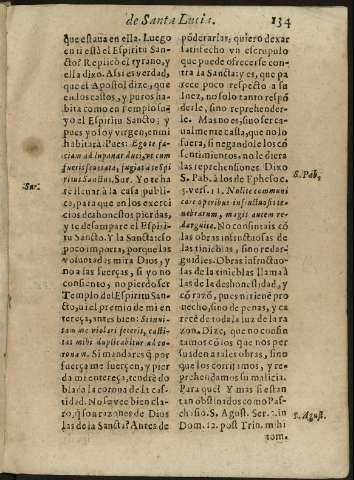 de Santa Lucia.
134
que estaua en ella. Luego
en ti està el Espiritu San-
cto? Replicò el tyrano, y
ella dixo. Assi es verdad,
que el Apostol dize, que
en los castos, y puros ha-
bita como en Templo su-
yo el Espiritu Sancto; y
pues yo soy virgen, en mi
habitarà. Pues: Ego te fa-
ciam ad lupanar duci, vt cum
fueris scortata, fugiat à te Spi-
ritus Sanctus. Sur. Yo te ha-
rè lleuar à la casa publi-
ca, para que en los exerci-
cios deshonestos pierdas,
y te desampare el Espiri-
tu Sancto. Y la Sancta: esso
poco importa, porque las
voluntades mira Dios, y
no a las fuerças, si yo no
consiento, no pierdo ser
Templo del Espiritu San-
cto, ni el premio de mi en
tereça, antes bien: Si inui-
tam me violari feceris, casti-
tas mihi duplicabitur ad co-
ronam. Si mandares q̃ por
fuerça me fuercen, y pier
da mi entereça, tendrè do
blada la corona de la cas-
tidad. No se vee bien cla-
ro, q̃ son razones de Dios
las de la Sancta? Antes de
Sur.
põderarlas, quiero dexar
satisfecho vn escrupulo
que puede ofrecerse con-
tra la Sancta: y es, que pa
rece poco respecto a su
Iuez, no solo tanto respõ
derle, sino reprehender-
le. Mas no es, sino ser ca-
ualmente casta, que no lo
fuera, si negandole los cõ
sentimientos, no le diera
las reprehensiones. Dixo
S. Pab. à los de Epheso c.
5. vers. 11. Nolite communi
care operibus infructuosis te-
nebrarum, magis autem re-
darguite. No consintais cõ
las obras infructuosas de
las tinieblas, sino redar-
guidles. Obras infructuo-
sas de las tinieblas llama à
las de la deshonestidad, y
cõ razõ, pues ni tiene pro
uecho, sino de penas, y ca
rece de toda la luz de la ra
zon. Dize, que no consin
tamos cõ los que nos per
suaden a tales obras, sino
que los corrijamos, y re-
prehendamos su malicia.
Para que? Y mas si estan
tan obstinados como Pas-
chasio. S. Agust. Ser. 2. in
Dom. 12. post Trin. mihi
tom.
S. Pab,
S. Agust.